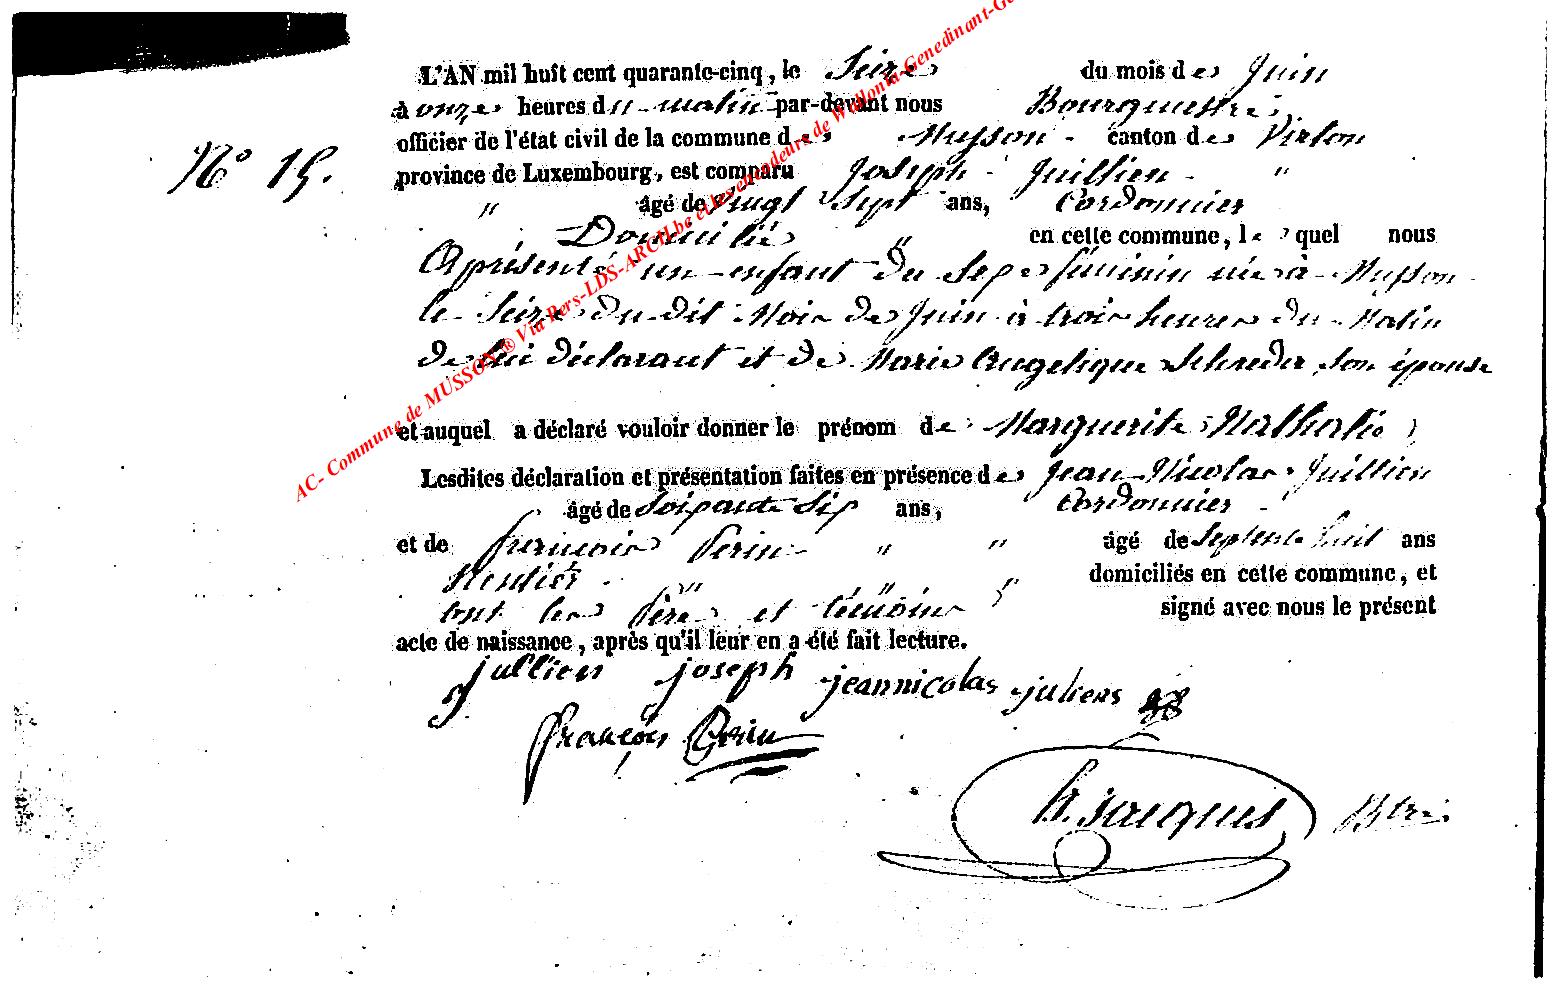 L'AN mil huit cent quarante-cinq, le Seize du mois de Juin
à onze heures du matin par-devant nous Bourgmestre
officier de l'état civil de la commune de Musson canton de Virton
N° 15.
province de Luxembourg, est comparu Joseph Juillien "
" âgé de vingt Sept ans, Cordonnier
Domicilié " en cette commune, lequel nous
A présenté un enfant du Sexe féminin née à Musson
le Seize du dit Mois de Juin à trois heures du Matin
de lui déclarant et de Marie Angelique Schreder son épouse
et auquel a déclaré vouloir donner le prénom de Marguerite Nathalie
Lesdites déclaration et présentation faites en présence de Jean Nicolas Juillien
âgé de Soixante Six ans, Cordonnier
et de François Perin " " âgé de Septente huit ans
Rentier " " domiciliés en cette commune, et
ont les Père et témoins signé avec nous le présent
acte de naissance, après qu'il leur en a été fait lecture.
jullien joseph jeannicolas juliens
françois Perin
h. jacques Btre
AC- Commune de MUSSON ® Via Pers-LDS-ARCH.be et les encodeurs de Wallonia-Genedinant-Ge